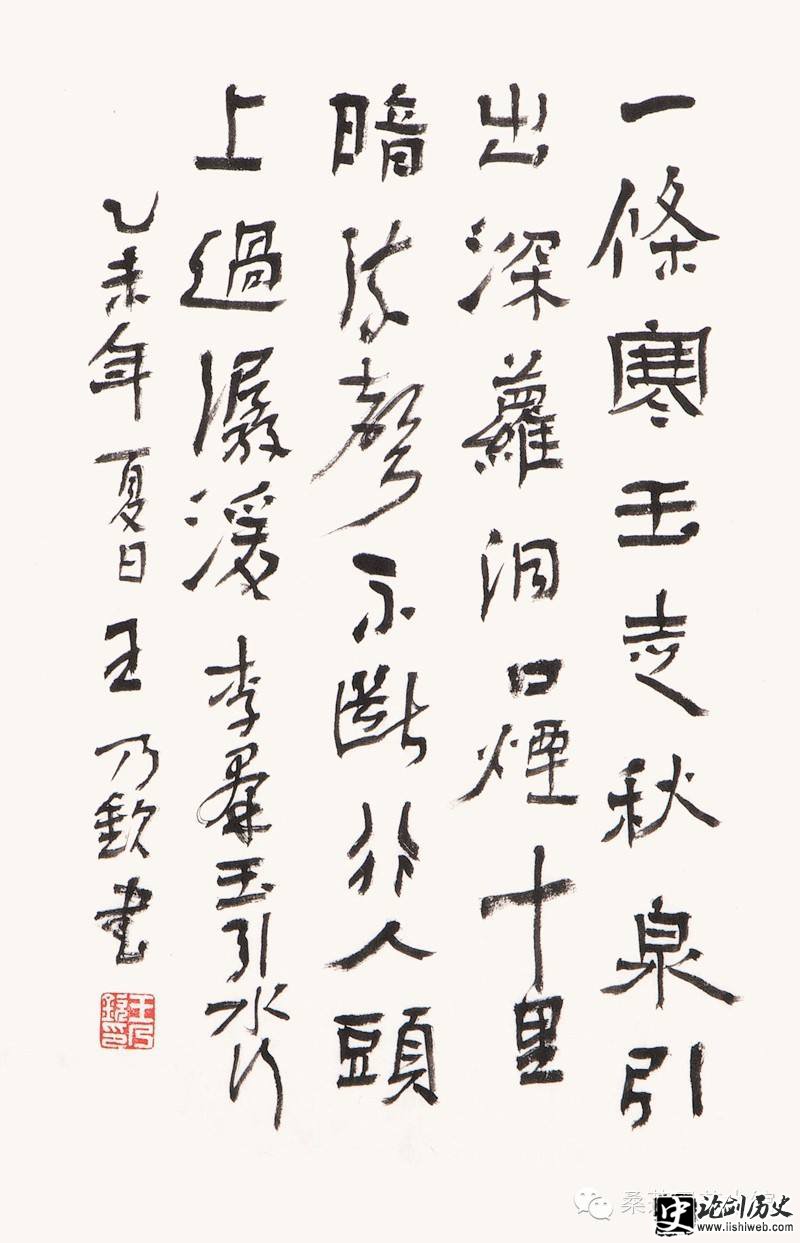 一條寒玉走秋泉引
出深蘿洞口煙十里
暗流聲不斷行人頭
上過潺湲 李羣玉引水行
乙未年夏日王乃欽書
王乃欽印
桑
史 论剑历史
www.lishiweb.com